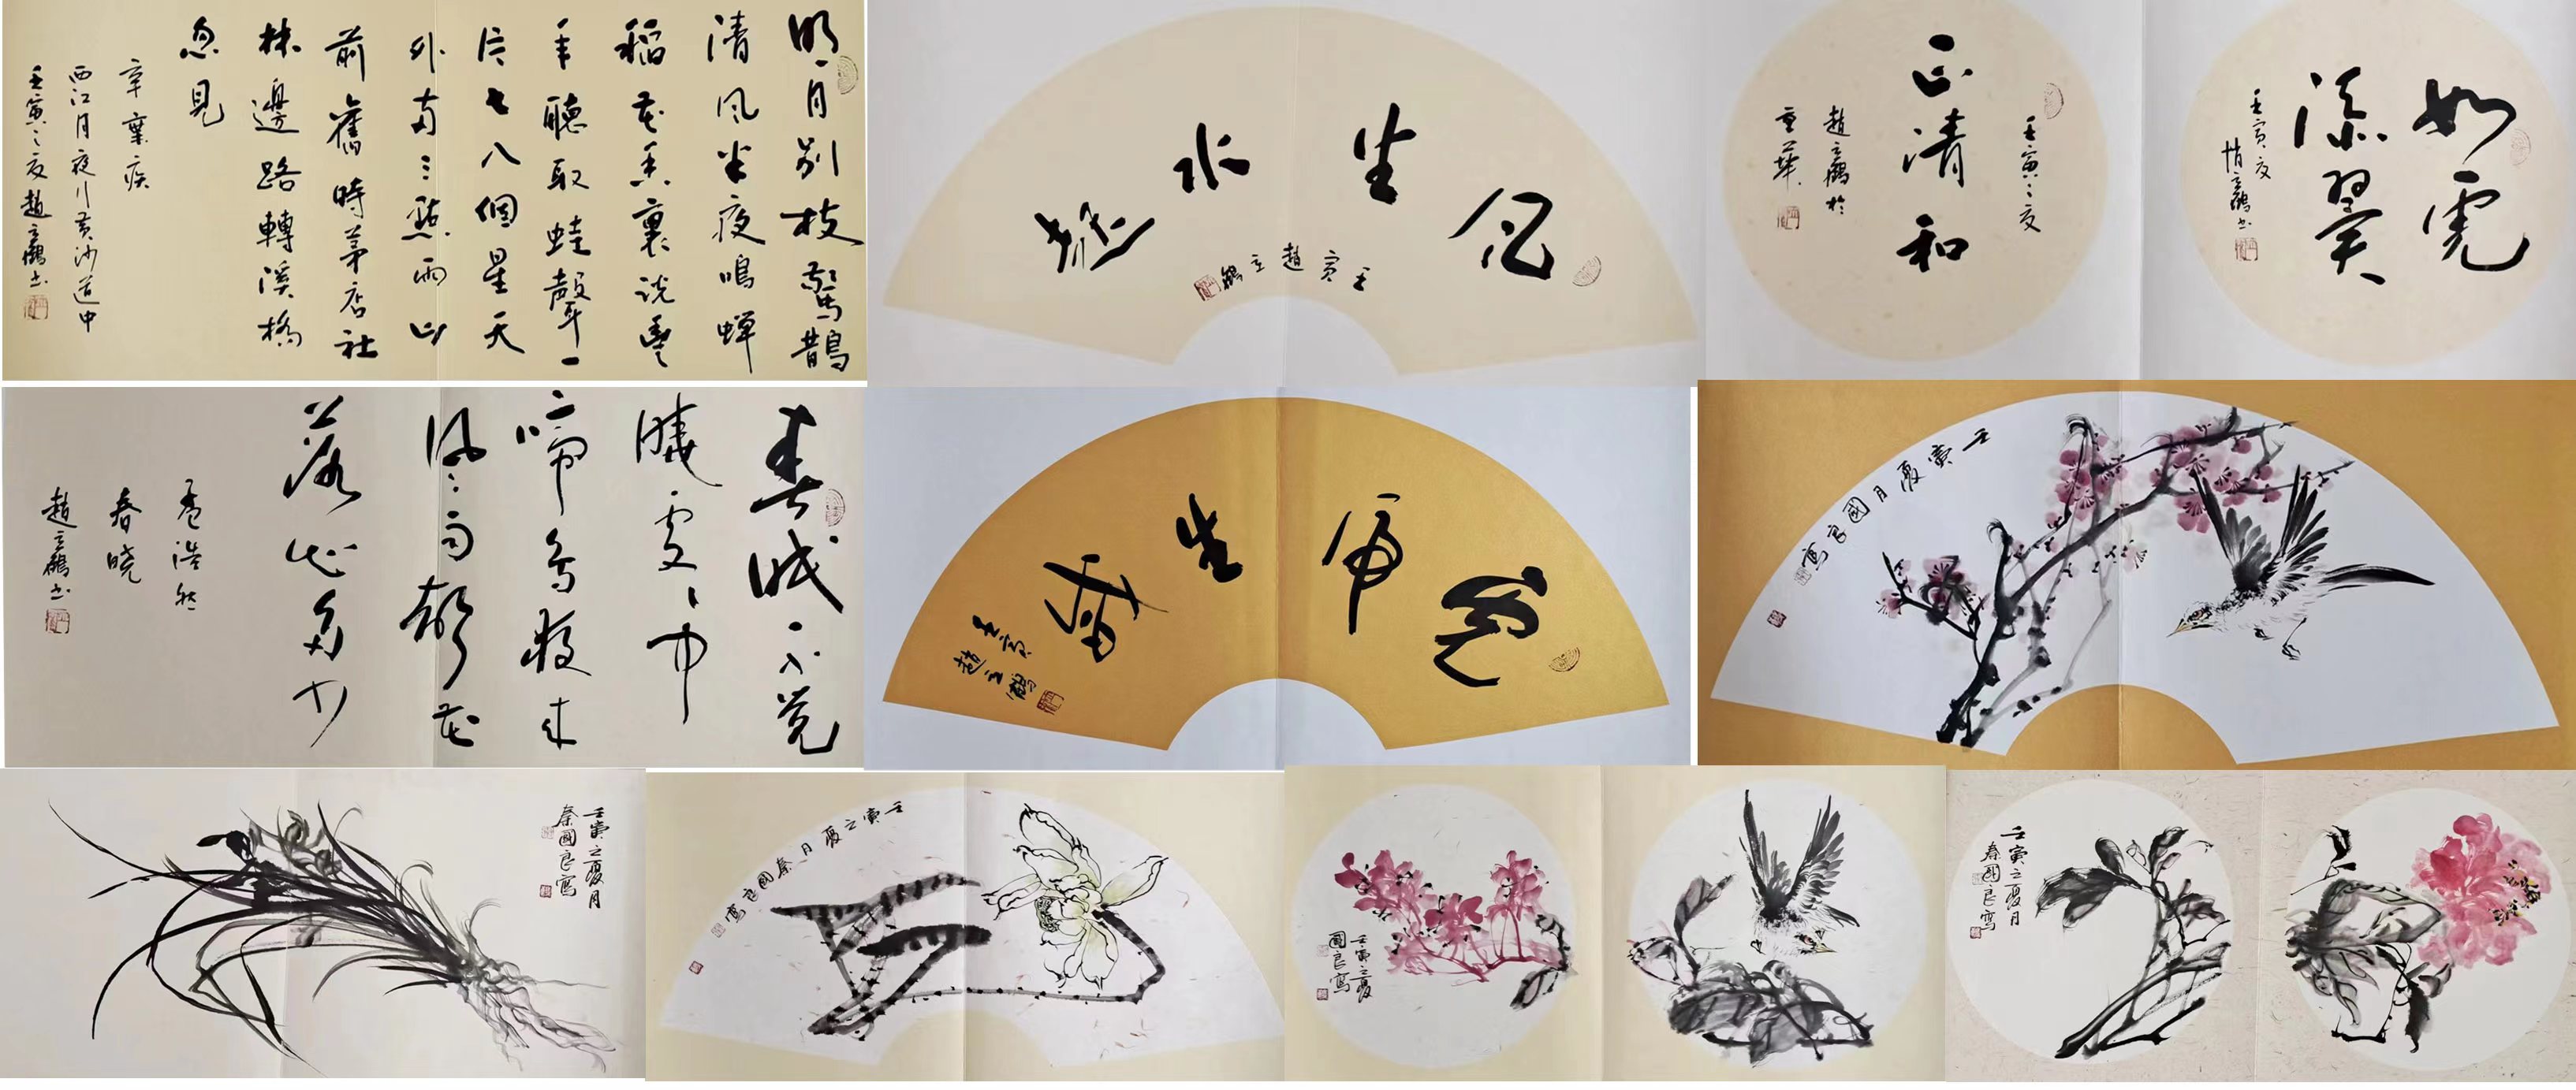 明月别枝驚鵲
清风半夜鳴蟬
稻花香裏说豐
年聽取蛙聲一
片七八個星天
外两三點雨山
前舊時茅店社
林邊路轉溪橋
忽見
辛棄疾
西江月夜行黄沙道中
壬寅之夏趙立鶴书
风生水起
壬寅趙立鶴
壬寅之夏
正清和
趙立鶴於
重華
如虎
添翼
壬寅夏
趙立鶴书
春眠不觉
曉處々闻
啼鸟夜来
风雨聲花
落知多少
孟浩然
春曉
趙立鶴书
虎虎生威
壬寅
趙立鶴
壬寅夏月國良寫
壬寅之夏月
秦國良寫
壬寅之夏月秦國良寫
壬寅之夏
國良寫
壬寅之夏月
秦國良寫